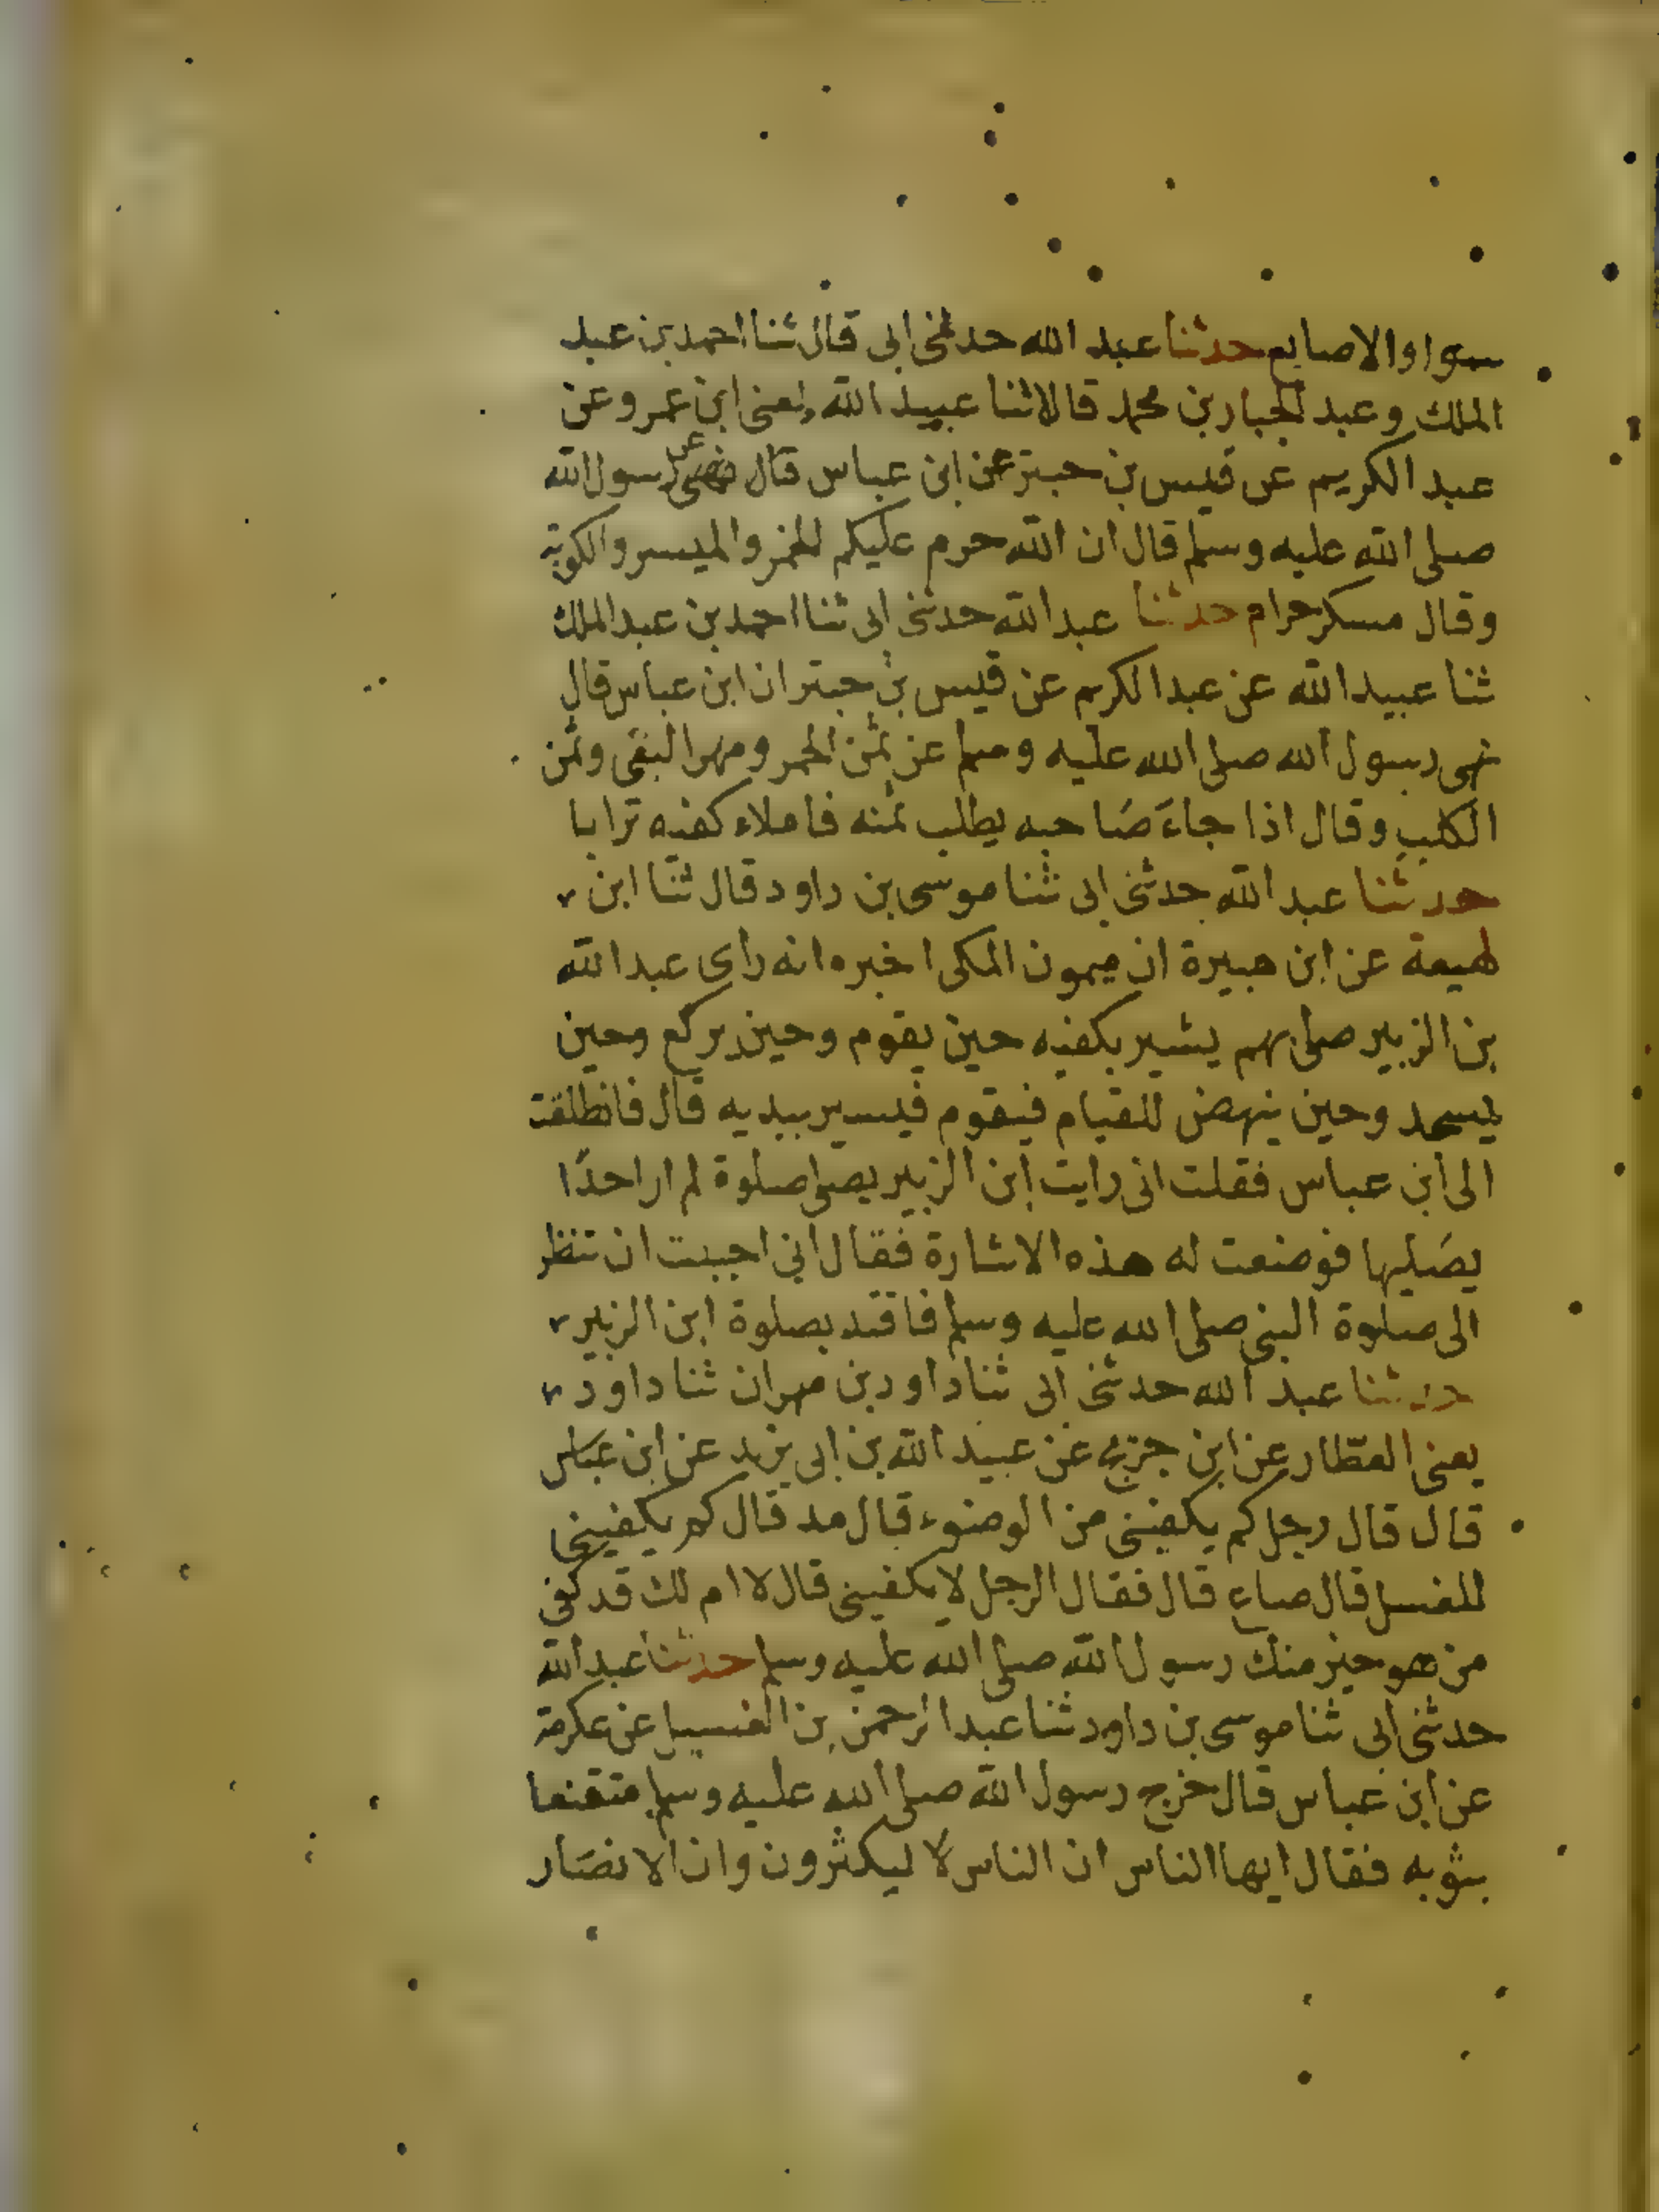 سوا والاصابع حدثنا عبد الله حدثنى ابى قال ثنا احمد بن عبد
الملك وعبد الجبار بن محمد قالا ثنا عبيد الله يعنى ابن عمرو عن
عبد الكريم عن قيس بن حبتر عن ابن عباس قال عن رسول الله
صلى الله عليه وسلم قال ان الله حرم عليكم الخمر والميسر والكوبة
وقال مسكر حرام حدثنا عبد الله حدثنى ابى ثنا احمد بن عبد الملك
ثنا عبيد الله عن عبد الكريم عن قيس بن حبتر ان ابن عباس قال
نهى رسول الله صلى الله عليه وسلم عن ثمن الخمر ومهر البغى وثمن
الكلب وقال اذا جاءَ صَاحبه يطلب ثمنه فاملاء كفيه ترابا
حدثنا عبد الله حدثنى ابى ثنا موسى بن داود قال ثنا ابن
لهيعة عن ابن هبيرة ان ميمون المكى اخبره انه راى عبد الله
بن الزبير صلى بهم يشير بكفيه حين يقوم وحين يركع وحين
يسجد وحين ينهض للقيام فيقوم فيسير بيديه قال فانطلقت
الى ابن عباس فقلت انى رايت ابن الزبير يصلى صلوة لم ار احدًا
يصَليها فوصفت له هذه الاشارة فقال ان احببت ان تنظر
الى صلوة النبى صلى الله عليه وسلم فاقتد بصلوة ابن الزبير
حدثنا عبد الله حدثنى ابى ثنا داود بن مهران ثنا داود
يعنى العطّار عن ابن جريج عن عبيد الله بن ابى يزيد عن ابن عباس
قال قال رجل كم يكفينى من الوضوء قال مد قال كم يكفينى
للغسل قال صاع قال فقال الرجل لا يكفينى قال لا ام لك قد كفى
من هو خير منك رسول الله صلى الله عليه وسلم حدثنا عبد الله
حدثنى ابى ثنا موسى بن داود ثنا عبد الرحمن بن الغسيل عن عكرمة
عن ابن عباس قال خرج رسول الله صلى الله عليه وسلم متقنعا
بثوبه فقال ايها الناس ان الناس لا ليكثرون وان الانصَار